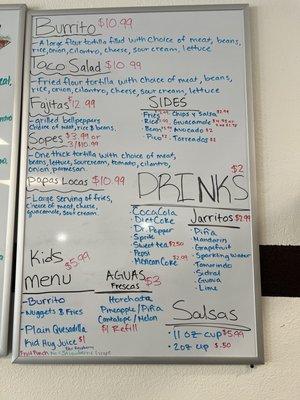 Burrito $10.99
- A large flour tortilla filled with choice of meat, beans,
rice, onion, cilantro, cheese, sour cream, lettuce
Taco Salad $10.99
- Fried flour tortilla with choice of meat, beans,
rice, onion, cilantro, cheese, sour cream, lettuce
Fajitas $12.99
- grilled bell peppers
choice of meat, rice & beans.
Sopes $3.99 or
3/$10.99
- One thick tortilla with choice of meat,
beans, lettuce, sour cream, tomato, cilantro,
onion, parmesan.
Papas Locas $10.99
- Large serving of fries,
choice of meat, cheese,
guacamole, sour cream.
SIDES
Fries
Rice
Beans
Pico $2
Chips y Salsa $2.99
Guacamole
Avocado $2
Toreados $2
DRINKS
$2
CocaCola
Diet Coke
Dr. Pepper
Sprite
Sweet tea $2.50
Pepsi
Mexican Coke $2.99
Jarritos $2.99
Piña
Mandarin
Grapefruit
Sparkling Water
Tamarindo
Sidral
Guava
Lime
Kids $5.99
menu
- Burrito
- Nuggets & Fries
- Plain Quesadilla
Kid Hug Juice $1
Fruit Punch
AGUAS $3
Frescas
Horchata
Pineapple/Piña
Cantalope/Melon
$1 Refill
Salsas
- 11 oz cup $5.99
- 2oz cup $.50